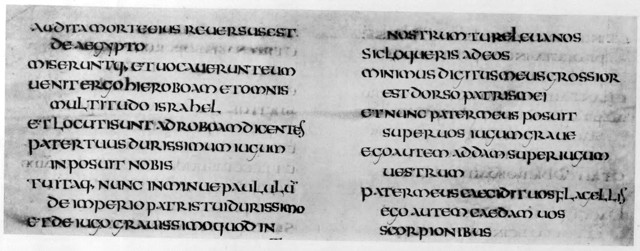 AUDITA MORTE EIUS REUERSUS EST
DE AEGYPTO
MISERUNTQ, ET UOCAUERUNT EUM
UENIT ERGO HIEROBOAM ET OMNIS
MULTITUDO ISRAHEL
ET LOCUTI SUNT AD ROBOAM DICENTES
PATER TUUS DURISSIMUM IUGUM
INPOSUIT NOBIS
TU ITAQ, NUNC INMINUE PAULULŪ
DE IMPERIO PATRIS TUI DURISSIMO
ET DE IUGO GRAUISSIMO QUOD IN
NOSTRUM TU RELEUA NOS
SIC LOQUERIS AD EOS
MINIMUS DIGITUS MEUS GROSSIOR
EST DORSO PATRIS MEI
ET NUNC PATER MEUS POSUIT
SUPER UOS IUGUM GRAUE
EGO AUTEM ADDAM SUPER IUGUM
UESTRUM
PATER MEUS CAECIDIT UOS FLAGELLIS
EGO AUTEM CAEDAM UOS
SCORPIONIBUS